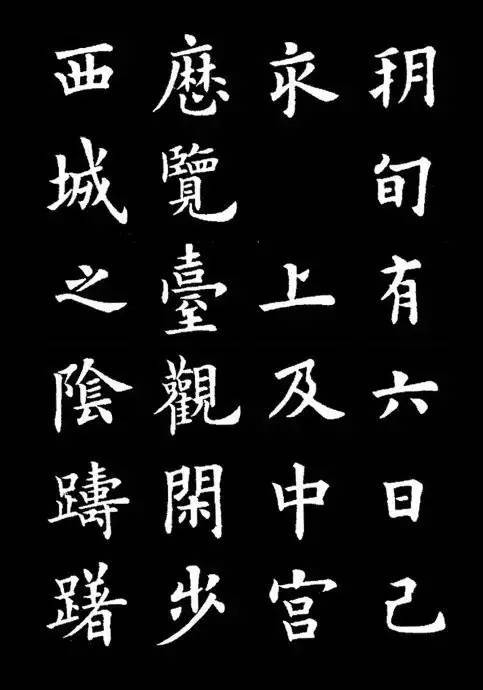 朔旬有六日己
亥上及中宫
歷覽臺觀閑步
西城之陰躊躇